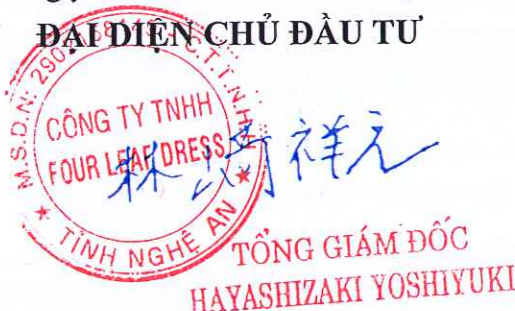 ĐẠI DIỆN CHỦ ĐẦU TƯ
CÔNG TY TNHH
FOUR LEAF DRESS
M.S.D.N:
TỈNH NGHỆ AN
林崎祥元
TỔNG GIÁM ĐỐC
HAYASHIZAKI YOSHIYUKI